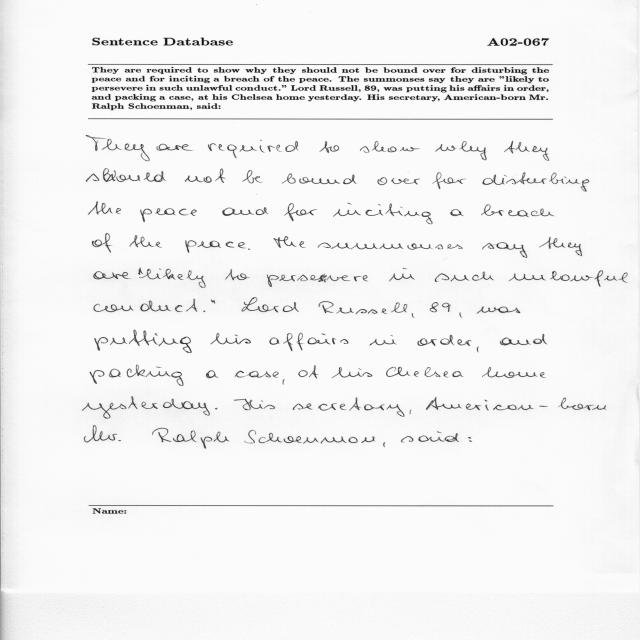 Sentence Database A02-067
They are required to show why they should not be bound over for disturbing the
peace and for inciting a breach of the peace. The summonses say they are "likely to
persevere in such unlawful conduct." Lord Russell, 89, was putting his affairs in order,
and packing a case, at his Chelsea home yesterday. His secretary, American-born Mr.
Ralph Schoenman, said:
They are required to show why they
should not be bound over for disturbing
the peace and for inciting a breach
of the peace. The summonses say they
are "likely to persevere in such unlawful
conduct." Lord Russell, 89, was
putting his affairs in order, and
packing a case, at his Chelsea home
yesterday. His secretary, American-born
Mr. Ralph Schoenman, said:
Name: